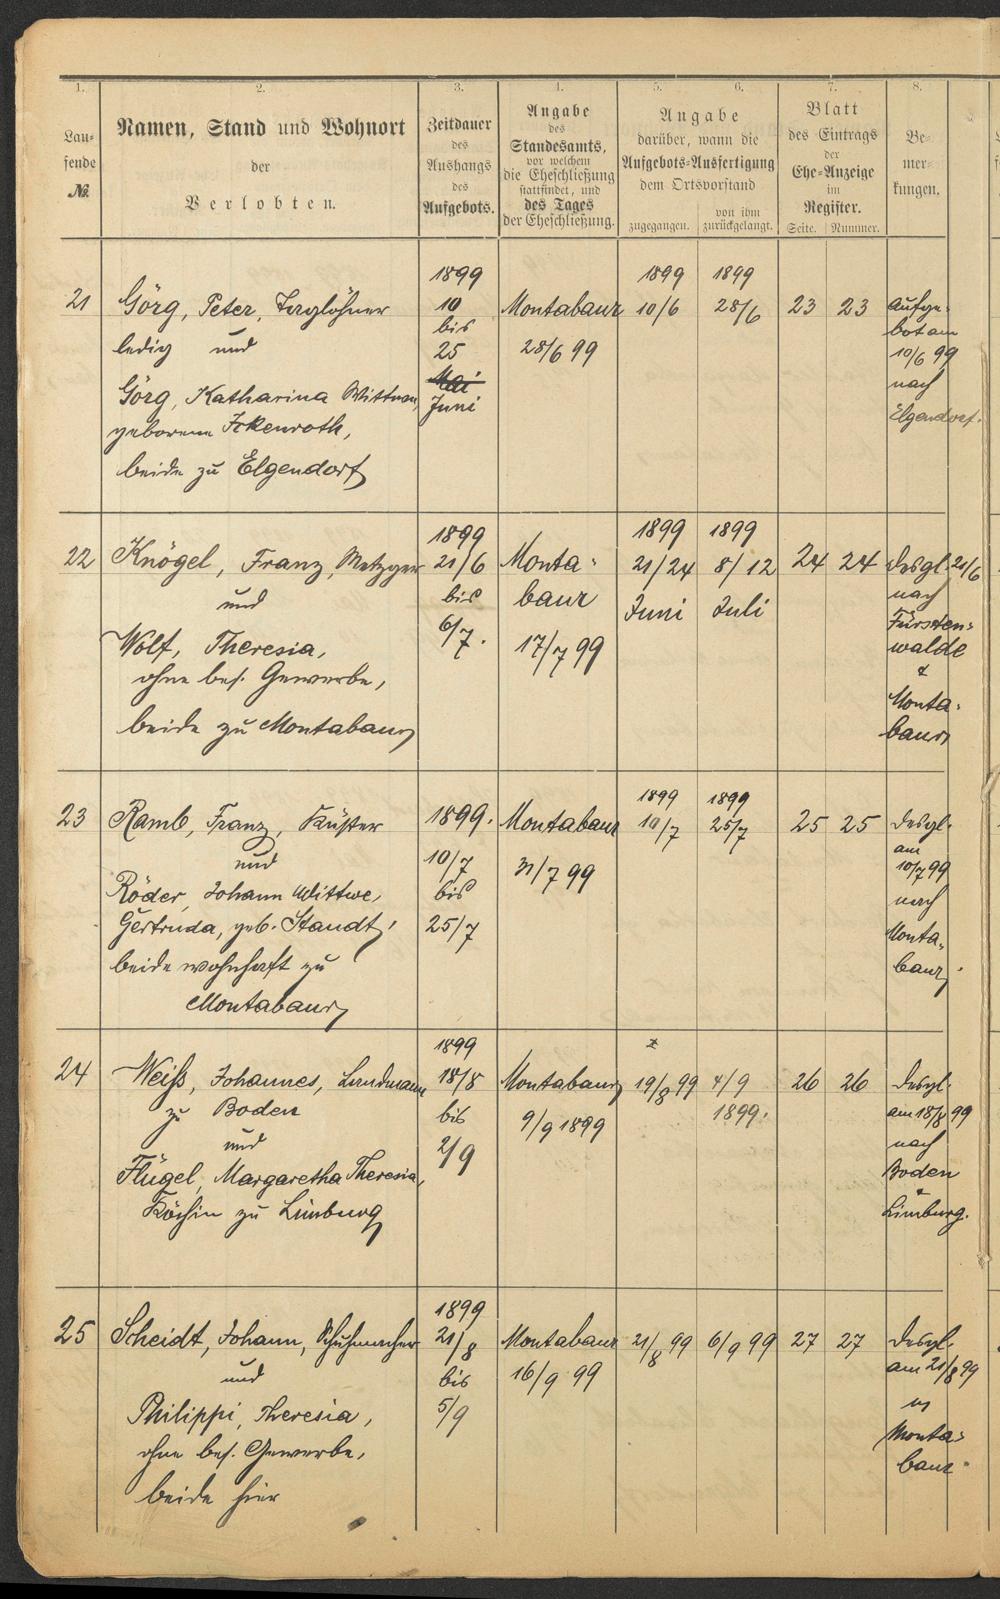 1.
Lau-
fende
№
2.
Namen, Stand und Wohnort
der
Verlobten.
3.
Zeitdauer
des
Aushangs
des
Aufgebots.
4.
Angabe
des
Standesamts,
vor welchem
die Eheschließung
stattfindet, und
des Tages
der Eheschließung.
5. 6.
Angabe
darüber, wann die
Aufgebots-Ausfertigung
dem Ortsvorstand
zugegangen.
von ihm
zurückgelangt.
7.
Blatt
des Eintrags
der
Ehe-Anzeige
im
Register.
Seite. Nummer.
8.
Be-
mer-
kungen.
21
Görg, Peter, Taglöhner
ledig und
Görg, Katharina Wittwe,
geborene Ickenroth,
beide zu Elgendorf
1899
10
bis
25
Mai
Juni
Montabaur
28/6 99
1899
10/6
1899
28/6
23 23
Aufge-
bot am
10/6 99
nach
Elgendorf.
22
Knögel, Franz, Metzger
und
Wolf, Theresia,
ohne bes. Gewerbe,
beide zu Montabaur
1899
21/6
bis
6/7.
Monta-
baur
17/7 99
1899
21/24
Juni
1899
8/12
Juli
24 24
desgl. 21/6
nach
Fürsten-
walde
&
Monta-
baur
23
Ramb, Franz, Küster
und
Röder, Johann Wittwe,
Gertruda, geb. Staudt,
beide wohnhaft zu
Montabaur
1899.
10/7
bis
25/7
Montabaur
31/7 99
1899
10/7
1899
25/7
25 25
desgl.
am
10/7 99
nach
Monta-
baur.
24
Weiß, Johannes, Landmann
zu Boden
und
Flügel, Margaretha Theresia,
Köchin zu Limburg
1899
18/8
bis
2/9
Montabaur
9/9 1899
19/8 99
4/9
1899.
26 26
desgl.
am 18/8 99
nach
Boden
&
Limburg.
25
Scheidt, Johann, Schuhmacher
und
Philippi, Theresia,
ohne bes. Gewerbe,
beide hier
1899
21/8
bis
5/9
Montabaur
16/9 99
21/8 99
6/9 99
27 27
desgl.
am 21/8 99
in
Monta-
baur